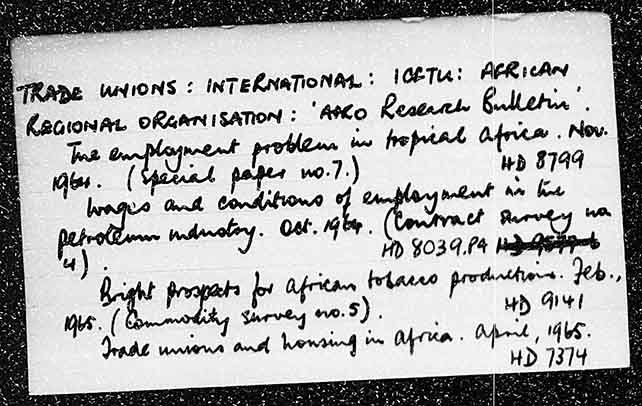 TRADE UNIONS: INTERNATIONAL: ICFTU: AFRICAN
REGIONAL ORGANISATION: 'AFRO Research Bulletin'.
The employment problem in tropical Africa. Nov.
1964. (Special paper no.7.) HD 8799
Wages and conditions of employment in the
petroleum industry. Oct. 1964. (Contract survey no
4). HD 8039.P4
Bright prospects for African tobacco production. Feb.,
1965. (Commodity survey no.5). HD 9141
Trade unions and housing in Africa. April, 1965.
HD 7374